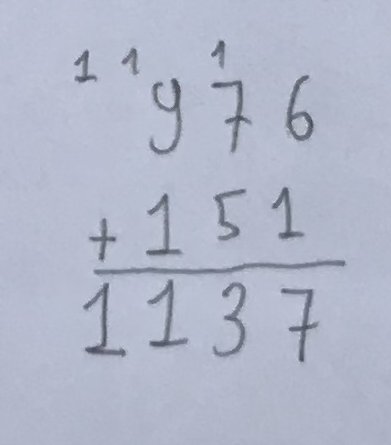 1 1 1
976
+ 151
1137